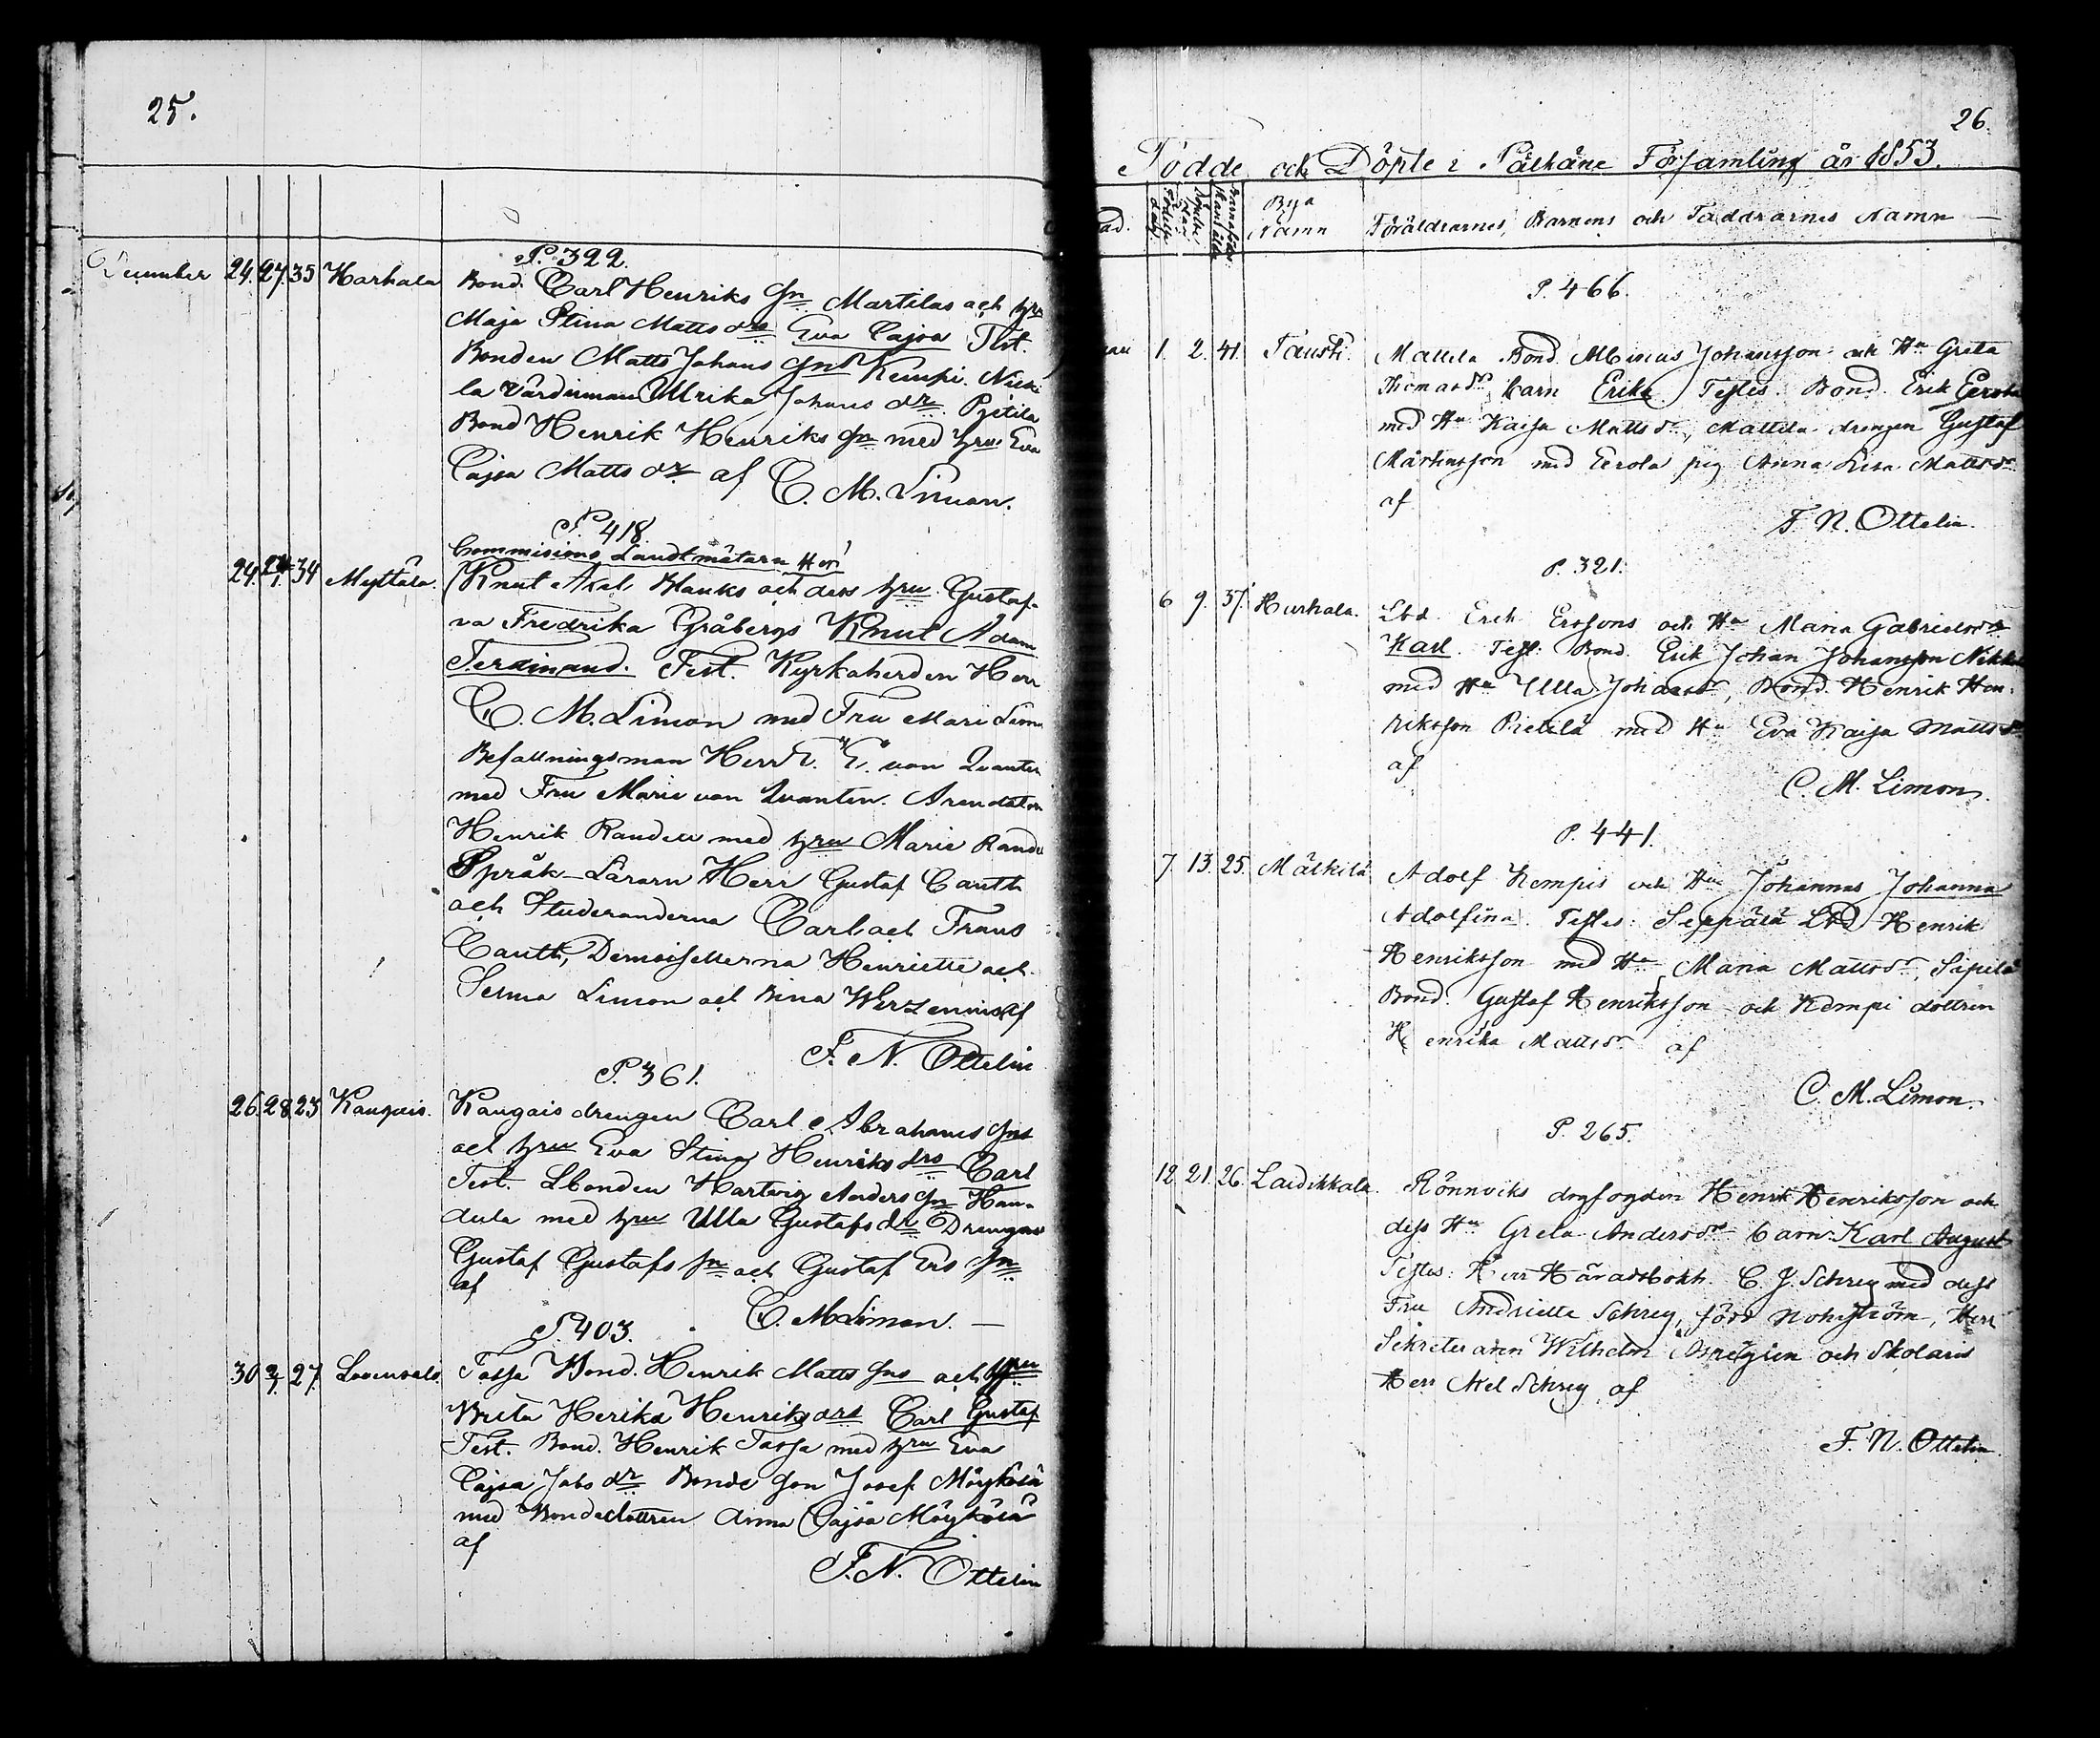 25.
P. 322.
December 24. 27. 35 Harhala Bond. Carl Henriks Sn Martilas och hru
Maja Stina Matts drs Eva Cajsa Test.
Bonden Matts Johans Sn Kempi.
la Värdinnan Ulrika Johans dr Pjetila
Bond Henrik Henriks Sn med hru Eva
Cajsa Matts dr af C. M. Limon.
P. 418.
Commissions Landtmätarn Herr
24. 24/1 34 Myttäla. Knut Axel Blanks och dess hru Gustaf-
va Fredrika Gråbergs Knut Adam
Ferdinand. Test. Kyrkoherden Herr
C. M. Limon med Fru Marie Limon
Befallningsman Herr E. von Qvanten
med Fru Marie von Qvanten. Arendatorn
Henrik Randell med hru Marie Randell
Språk-Lärarn Herr Gustaf Cauth
och Studeranderna Carl och Frans
Cauth, Demoisellerna Henriette och
Selma Limon och Bina Werzennis af
F. N. Ottelin
P. 361.
26. 28. 23 Kangais. Kangais drengen Carl Abrahams Sns
och hru Eva Stina Henriks drs Carl
Test. Lbonden Hartvig Anders Sn Han-
dula med hru Ulla Gustafs dr Drengarne
Gustaf Gustafs Sn och Gustaf Ers Sn
af
C. M Limon. —
P. 403.
30 2/1 27. Tassa Bond. Henrik Matts Sns och hru
Brita Herika Henriks drs Carl Gustaf
Test. Bond. Henrik Tassa med hru Eva
Cajsa Jobs dr Bonde Son Josef Möykölä
med Bondedottren Anna Cajsa Möykölä
af
F. N. Ottelin
26.
Födde och Döpte i Pälkäne Församling år 1853.
Bya Namn Föräldrarnes, Barnens och Faddrarnes Namn —
P. 466.
1. 2. 41. Tausti. Mattila Bond. Albinus Johansson och Hu Greta
Thomasdr barn Erika Testes. Bond. Erik Eerola
med Hu Kaisa Mattsdr, Mattila drengen Gustaf
Mårtensson med Eerola pig Anna Lisa Mattsdr
af
F. N. Ottelin.
P. 321.
6 9. 37. Harhala. Lbd. Erik Erssons och Hu Maria Gabrielsdr
Karl. Test: Bond. Erik Johan Johansson Nikkilä
med Hu Ulla Johansdr, Bond. Henrik Hen-
riksson Pietilä med Hu Eva Kaisa Mattsdr
af
C. M. Limon.
P. 441.
7. 13. 25. Mälkilä Adolf Kempis och Hu Johannas Johanna
Adolfina Testes: Seppälä Lbd Henrik
Henriksson med Hu Maria Mattsdr, Sipilä
Bond. Gustaf Henriksson och Kempi dottren
Henrika Mattsdr af
C. M. Limon.
P. 265.
12. 21. 26. Laidikkala. Rönnviks drgfogden Henrik Henriksson och
dess Hu Greta Andersdr barn Karl August
Testes: Herr Häradsbokh. C. J. Schrey med dess
Fru Andriette Schrey, född Nohrström, Herr
Sekreteraren Wilhelm och Skolaris
Herr Axel Schrey af
F. N. Ottelin.